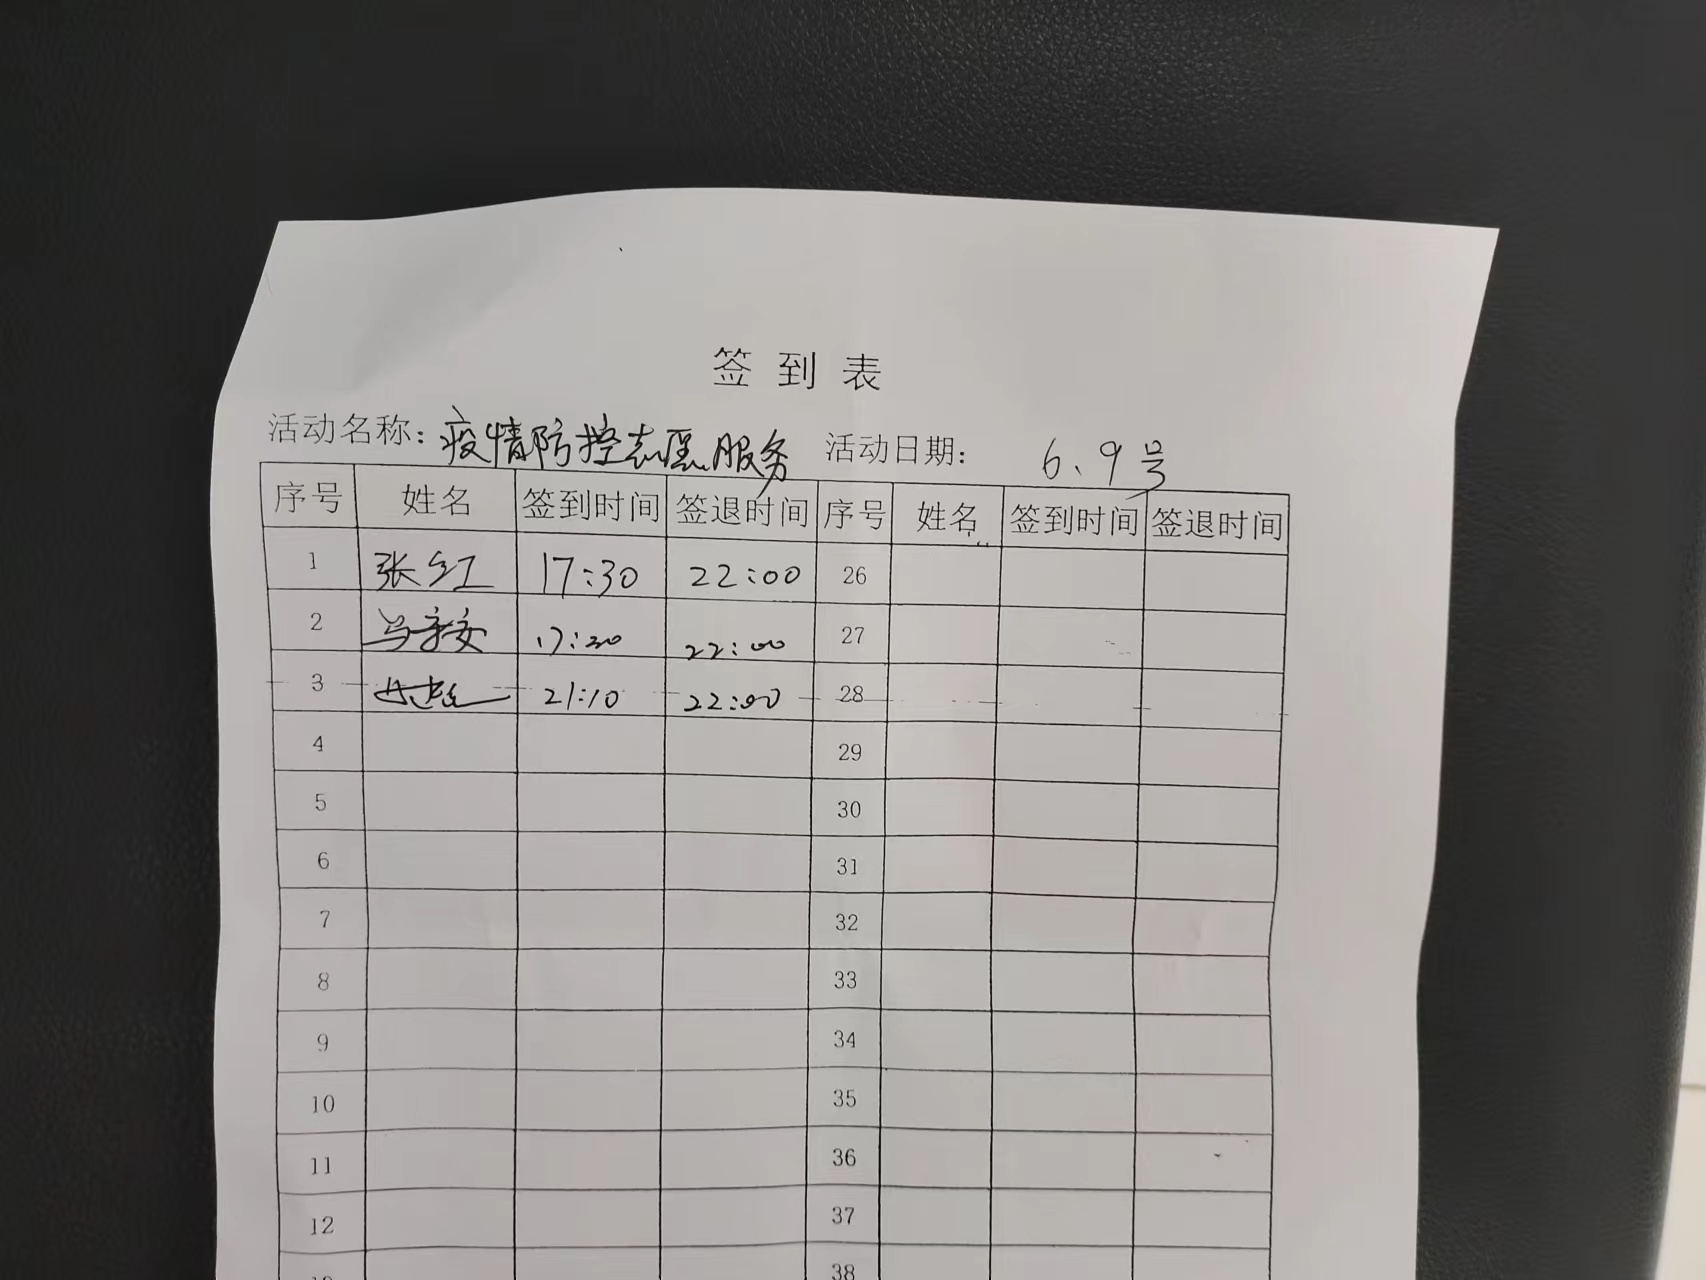 签到表
活动名称：疫情防控志愿服务 活动日期： 6、9号
序号 姓名 签到时间 签退时间 序号 姓名 签到时间 签退时间
1 张红 17:30 22:00 26
2 22:00 27
3 21:10 22:00 28
4 29
5 30
6 31
7 32
8 33
9 34
10 35
11 36
12 37
38